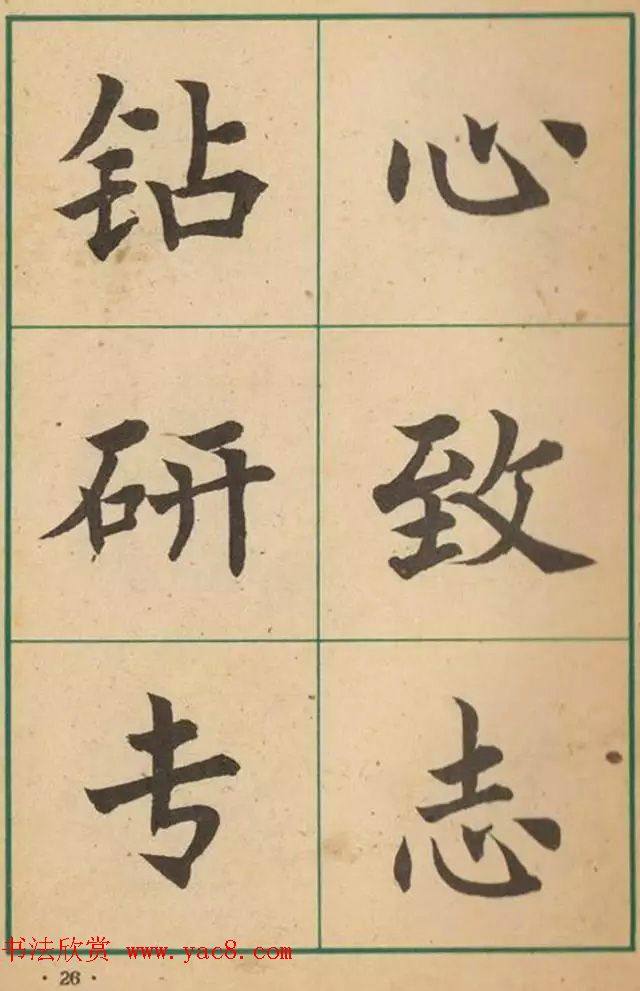 心致志
钻研专
书法欣赏 www.yac8.com
· 26 ·